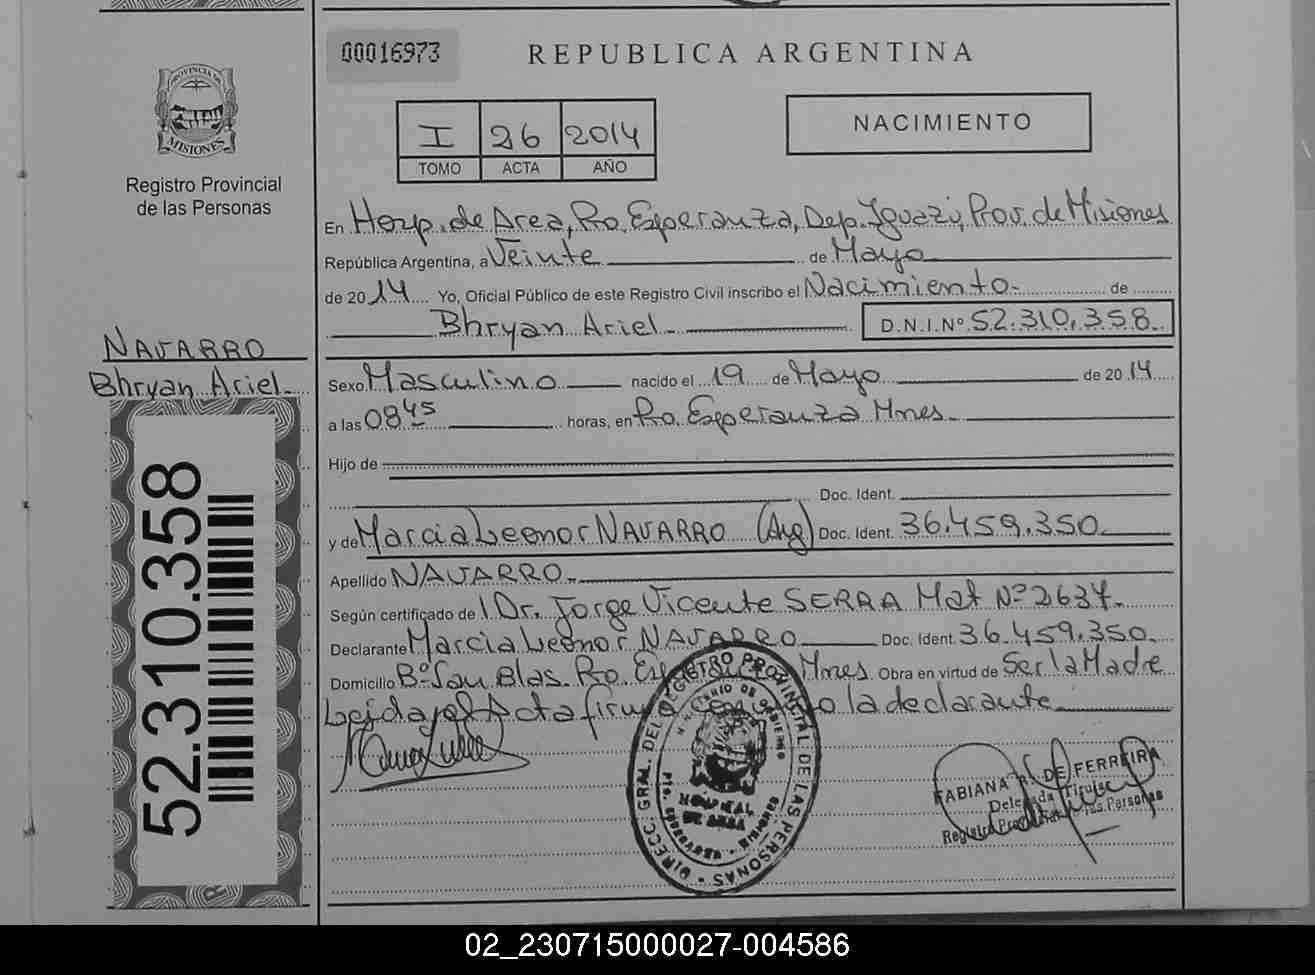 00016973
REPUBLICA ARGENTINA
PROVINCIA DE
MISIONES
Registro Provincial
de las Personas
I 26 2014
TOMO ACTA AÑO
NACIMIENTO
En Hosp. de Area, Pto. Esperanza, Dep. Iguazú, Prov. de Misiones
República Argentina, a Veinte de Mayo
de 2014 Yo, Oficial Público de este Registro Civil inscribo el Nacimiento de
Bhryan Ariel D.N.I. Nº 52.310.358
NAVARRO
Bhryan Ariel
52.310.358
Sexo Masculino nacido el 19 de Mayo de 2014
a las 08 45 horas, en Pto. Esperanza Mnes
Hijo de
Doc. Ident.
y de Marcia Leonor NAVARRO (Arg) Doc. Ident. 36.459.350
Apellido NAVARRO
Según certificado de l Dr. Jorge Vicente SERRA Mat Nº 2637.
Declarante Marcia Leonor NAVARRO Doc. Ident. 36.459.350
Domicilio Bº San Blas. Pto. Mnes. Obra en virtud de Ser la Madre
Leida el Acta la declarante
DIRECC. GRAL. DEL REGISTRO PROVINCIAL DE LAS PERSONAS
MINISTERIO DE GOBIERNO
HOSPITAL
DE AREA
MISIONES
FABIANA R. DE FERREIRA
Delegada Titular
Registro Provincial de las Personas
02_230715000027-004586